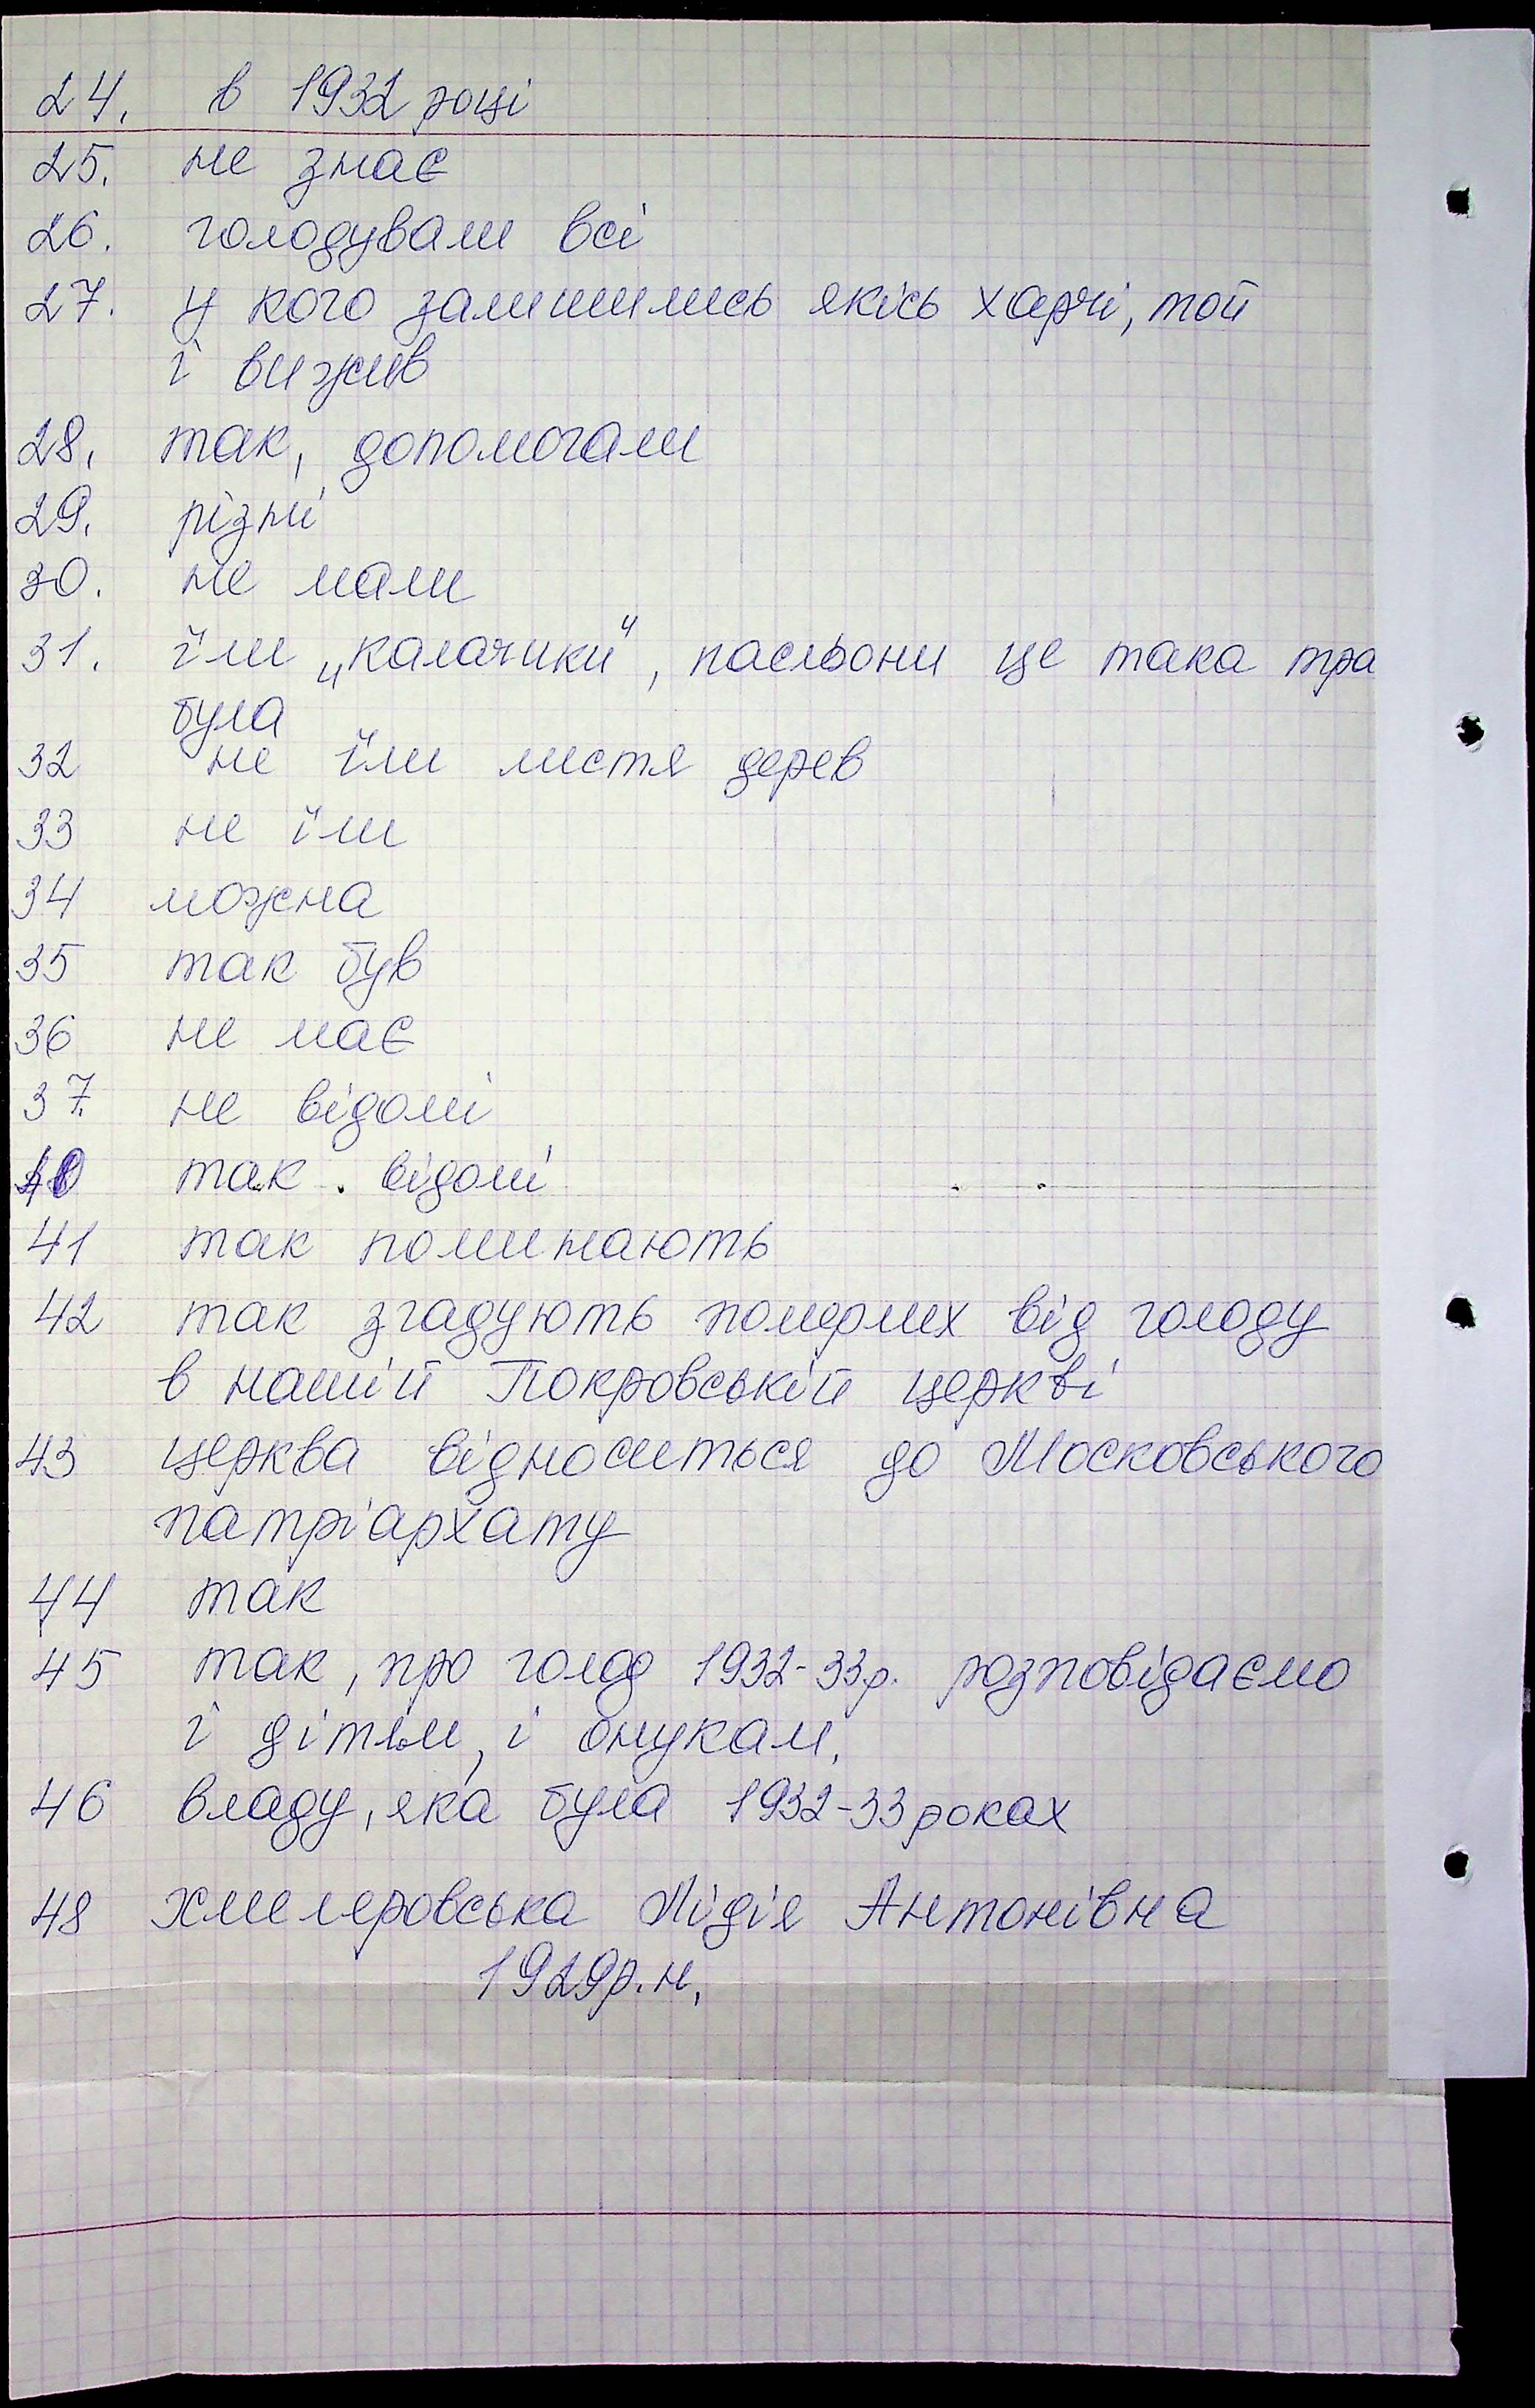 24. в 1932 році
25. не знає
26. голодували всі
27. у кого залишились якісь харчі, той
і вижив
28. так, допомогали
29. різні
30. не мали
31. їли „калачики", пасльони це така тра
була
32 не їли листя дерев
33 не їли
34 можна
35 так був
36 не має
37. не відомі
40 так. відомі
41 так поминають
42 так згадують померлих від голоду
в нашій Покровській церкві
43 церква відноситься до Московського
патріархату
44 так
45 так, про голод 1932-33р. розповідаємо
і дітям, і онукам.
46 владу, яка була 1932-33 роках
48 Лідія Антонівна
1929р.н.